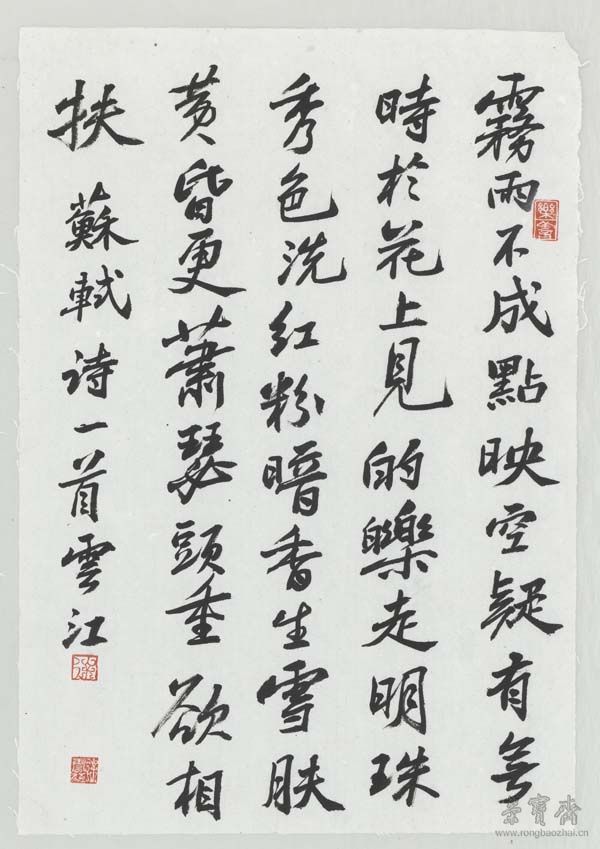 霧雨不成點映空疑有無
時於花上見的皪走明珠
秀色洗红粉暗香生雪肤
黄昏更蕭瑟頭重欲相
扶
蘇軾诗一首雲江
榮寶齋
www.rongbaozhai.cn